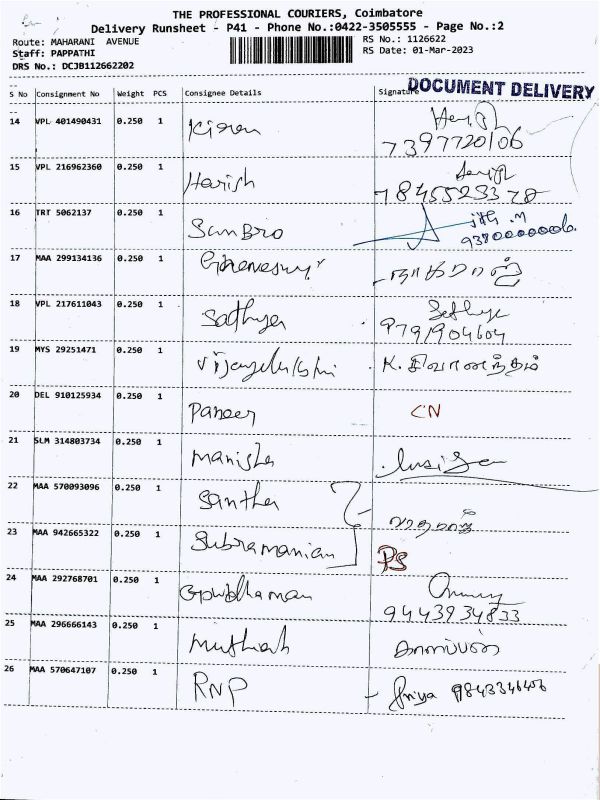 THE PROFESSIONAL COURIERS, Coimbatore
Delivery Runsheet - P41 - Phone No.:0422-3505555 - Page No.:2
Route: MAHARANI AVENUE
RS No.: 1126622
Staff: PAPPATHI
RS Date: 01-Mar-2023
DRS No.: DCJB112662202
DOCUMENT DELIVERY
S No Consignment No Weight PCS Consignee Details Signature
14 VPL 401490431 0.250 1 Kiran
7397720106
15 VPL 216962360 0.250 1 Harish
16 TRT 5062137 0.250 1 SanBro
17 MAA 299134136 0.250 1 நாகராஜ்
18 VPL 217611043 0.250 1 Sathya Sathya
9791904604
19 MYS 29251471 0.250 1 Vijayalakshmi K. சிவானந்தம்
20 DEL 910125934 0.250 1 Paneer CN
21 SLM 314803734 0.250 1 Manisha
22 MAA 570093096 0.250 1 Santha
23 MAA 942665322 0.250 1 Subramanian PS
24 MAA 292768701 0.250 1
9443934833
25 MAA 296666143 0.250 1 Muthiah
26 MAA 570647107 0.250 1 RNP Priya 9843346406